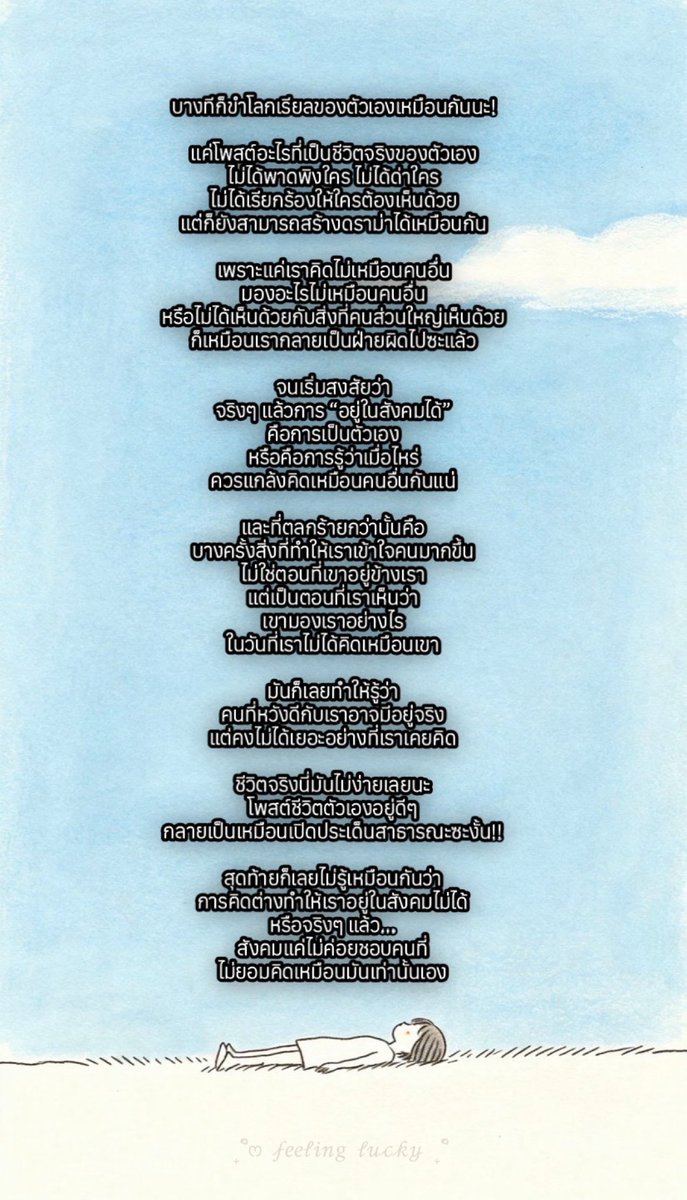 บางทีก็ขำโลกเรียลของตัวเองเหมือนกันนะ!
แค่โพสต์อะไรที่เป็นชีวิตจริงของตัวเอง
ไม่ได้พาดพิงใคร ไม่ได้ด่าใคร
ไม่ได้เรียกร้องให้ใครต้องเห็นด้วย
แต่ก็ยังสามารถสร้างดราม่าได้เหมือนกัน
เพราะแค่เราคิดไม่เหมือนคนอื่น
มองอะไรไม่เหมือนคนอื่น
หรือไม่ได้เห็นด้วยกับสิ่งที่คนส่วนใหญ่เห็นด้วย
ก็เหมือนเรากลายเป็นฝ่ายผิดไปซะแล้ว
จนเริ่มสงสัยว่า
จริงๆ แล้วการ “อยู่ในสังคมได้”
คือการเป็นตัวเอง
หรือคือการรู้ว่าเมื่อไหร่
ควรแกล้งคิดเหมือนคนอื่นกันแน่
และที่ตลกร้ายกว่านั้นคือ
บางครั้งสิ่งที่ทำให้เราเข้าใจคนมากขึ้น
ไม่ใช่ตอนที่เขาอยู่ข้างเรา
แต่เป็นตอนที่เราเห็นว่า
เขามองเราอย่างไร
ในวันที่เราไม่ได้คิดเหมือนเขา
มันก็เลยทำให้รู้ว่า
คนที่หวังดีกับเราอาจมีอยู่จริง
แต่คงไม่ได้เยอะอย่างที่เราเคยคิด
ชีวิตจริงนี่มันไม่ง่ายเลยนะ
โพสต์ชีวิตตัวเองอยู่ดีๆ
กลายเป็นเหมือนเปิดประเด็นสาธารณะซะงั้น!!
สุดท้ายก็เลยไม่รู้เหมือนกันว่า
การคิดต่างทำให้เราอยู่ในสังคมไม่ได้
หรือจริงๆ แล้ว...
สังคมแค่ไม่ค่อยชอบคนที่
ไม่ยอมคิดเหมือนมันเท่านั้นเอง
feeling lucky